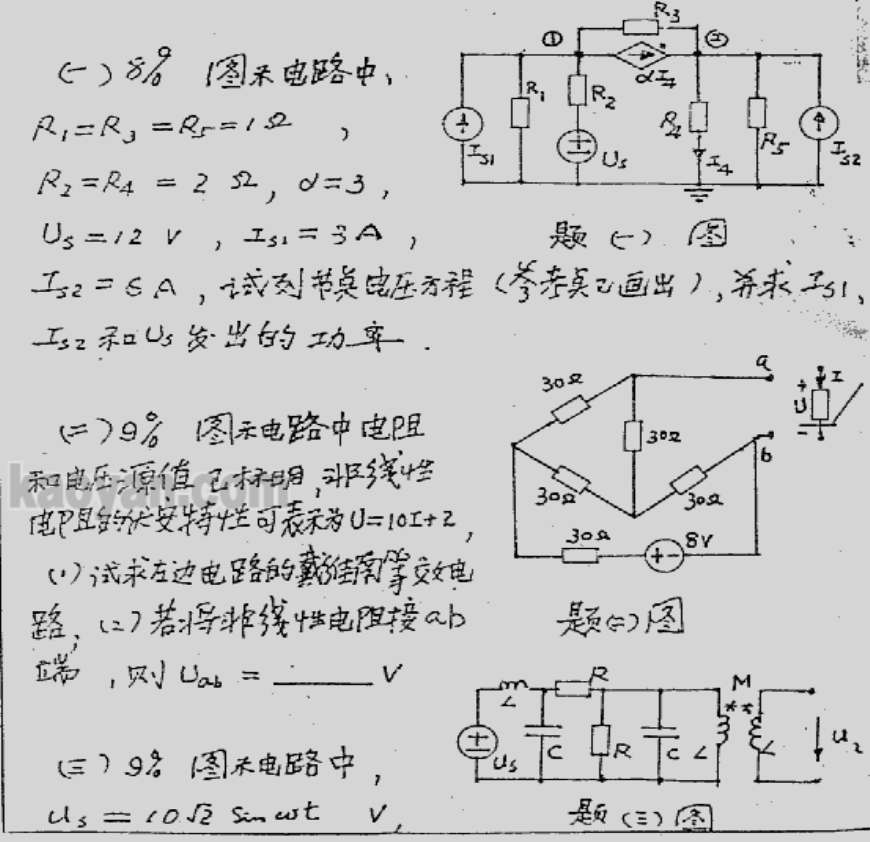 (一) 8% 图示电路中,
R₁=R₃=R₅=1Ω ,
R₂=R₄ = 2 Ω, α=3 ,
U_S=12 V , I_S1=3A ,
I_S2=6A , 试列节点电压方程 (参考点已画出), 并求 I_S1,
I_S2 和 U_S 发出的功率.
① ② R₃ αI₄
I_S1 R₁ R₂ U_S R₄ I₄ R₅ I_S2
题 (一) 图
(二) 9% 图示电路中电阻
和电压源值已标明, 非线性
电阻的伏安特性可表示为 U=10I+2,
(1) 试求左边电路的戴维南等效电
路; (2) 若将非线性电阻接 ab
端, 则 U_ab = ______ V
30Ω 30Ω 30Ω 30Ω 30Ω 8V
a b + U - I
题(二)图
(三) 9% 图示电路中,
u_s = 10√2 sin ωt V,
L R M
u_s C R C L ** L u₂
题 (三) 图
kaoyan.com